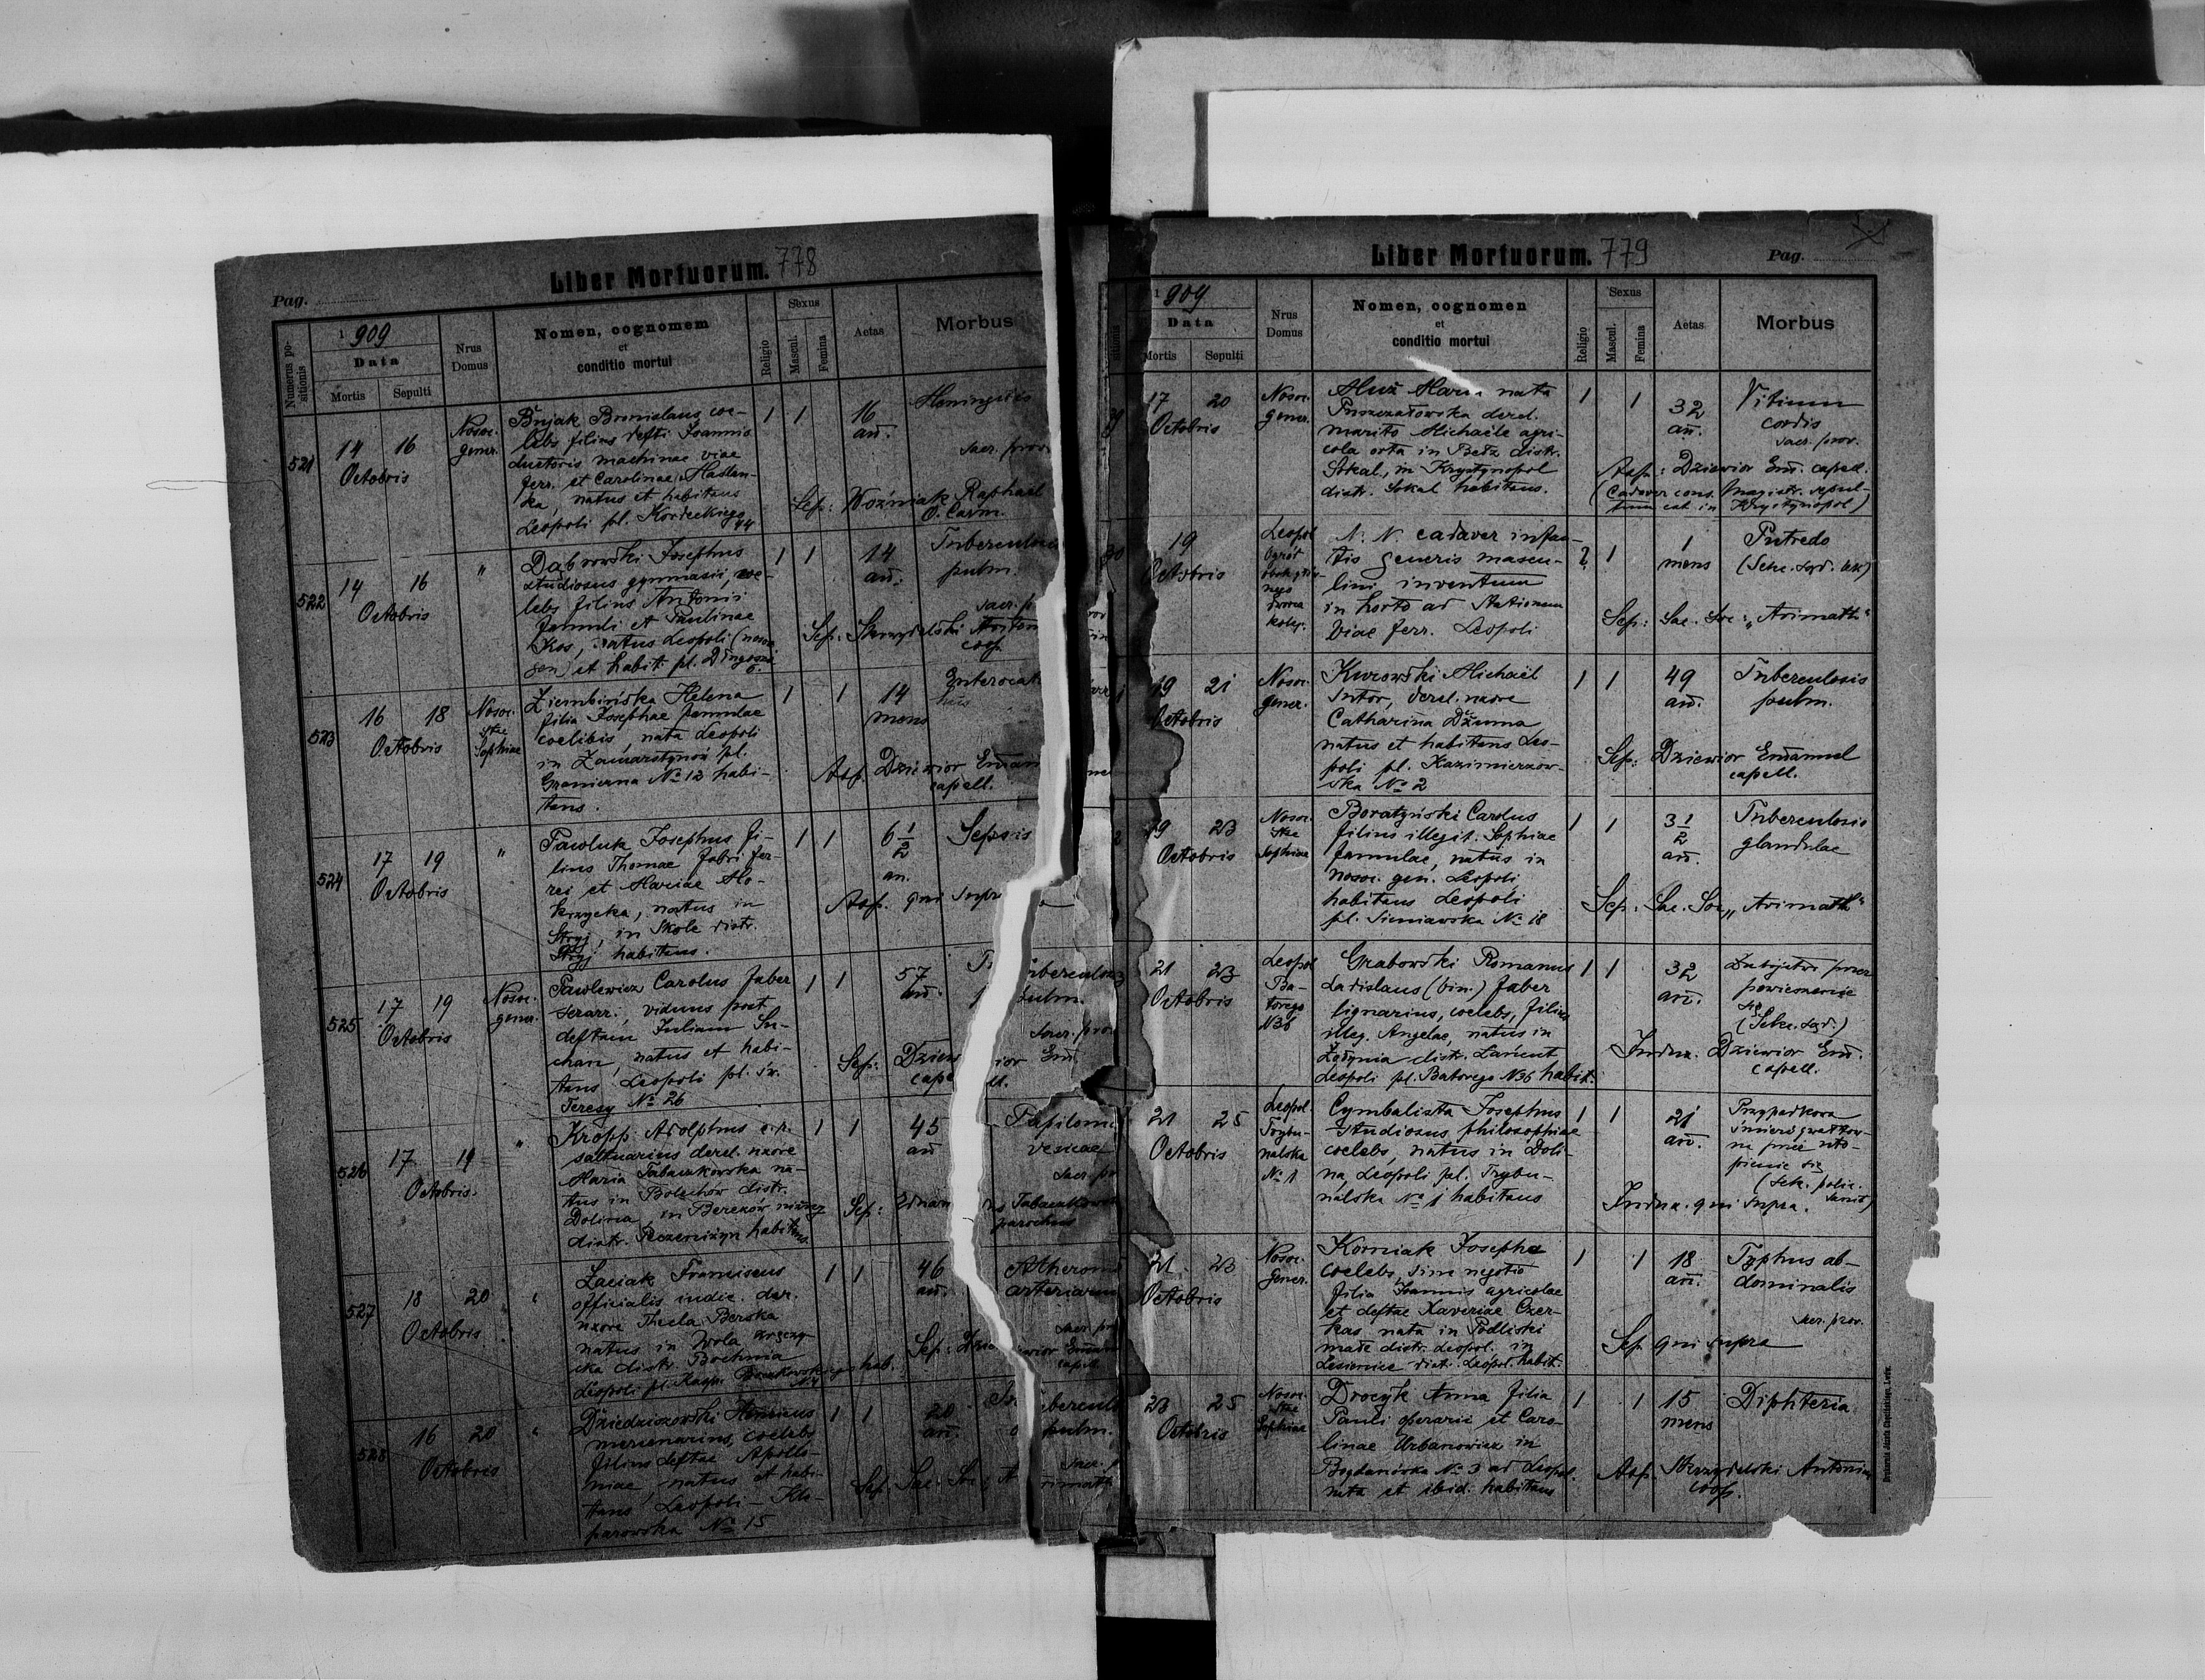 Liber Mortuorum. 778
Pag.
Numerus positionis
1909
Data
Mortis
Sepulti
Nrus Domus
Nomen, cognomem
et
conditio mortui
Religio
Sexus
Mascul.
Femina
Aetas
Morbus
521
14 16
Octobris
Nosoc.
gener.
Bujak Bronislaus coe-
lebs filius defti Joannis
ductoris machinae viae
ferr. et Carolinae
ka, natus et habitans
Leopoli pl. Kordeckiego 44
1 1
16
an.
Meningitis
sacr. prov
Sep: Woźniak Raphael
O. Carm.
522
14 16
Octobris
"
Dąbrowski Josephus
studiosus gymnasii, coe-
lebs filius Antonii
famuli et Paulinae
Kos, natus Leopoli (nosoc.
gen) et habit. pl. Długosza
6.
1 1
14
an.
Tuberculosis
pulm.
sacr. p
Sep: Skrzydelski Anton
coop.
523
16 18
Octobris
Nosoc.
Stae
Sophiae
Ziembińska Helena
filia Josephae famulae
coelibis, nata Leopoli
in Zamarstynów pl.
Graniczna No 12 habi-
tans.
1 1
14
mens
Enterocat
hus
Asp. Dziewior Eman
capell.
524
17 19
Octobris
"
Pawluk Josephus fi-
lius Thomae fabri fer-
rei et Mariae Mo-
krzycka, natus in
Stryj, in Skole distr.
Stryj habitans.
1 1
6 1/2
an.
Sepsis
Asp. qui supra
525
17 19
Octobris
Nosoc.
gener.
Pawlewicz Carolus faber
serarr., viduus post
deftam Juliam Su-
chan, natus et habi-
tans Leopoli pl. św.
Teresy No 26
1 1
57
an.
Tuberculos
pulm.
sacr. prov
Sep: Dziewior Em.
capell.
526
17 19
Octobris.
"
Kropp Adolphus c. r.
saltuarius derel. uxore
Maria Tabaczkowska na-
tus in Bolechów distr.
Dolina, in Berezów niżny
distr. Peczeniżyn habitans
1 1
45
an
Papiloma
vesicae
sacr. pro
Sep: Tabaczkowski
parochus
527
18 20
Octobris
"
Łaciak Franciscus
officialis iudic. der.
uxore Thecla Berska
natus in Wola
cka distr. Bochnia
Leopoli pl. Kasp. Boczkowskiego hab.
1 1
46
an.
Atheroma
arteriarum
sacr. prov
Sep: Dziewior Emanu
capell.
528
16 20
Octobris
"
Dziedziszowski Henricus
mercenarius, coelebs
filius deftae Apollo-
niae, natus et habi-
tans Leopoli — Kle-
parowska No 15
1 1
20
an.
Tuberculo
pulm.
sacr. p
Sep. Sac. Soc. Arimath
Liber Mortuorum. 779
Pag.
sitionis
1909
Data
Mortis
Sepulti
Nrus
Domus
Nomen, cognomen
et
conditio mortui
Religio
Sexus
Mascul.
Femina
Aetas
Morbus
17 20
Octobris
Nosoc.
gener.
Muż Maria nata
derel.
marito Michaële agri-
cola orta in Bełz distr.
Sokal, in Krystynopol
distr. Sokal habitans.
1 1
32
an.
Vitium
cordis
sacr. prov.
Asp: Dziewior Em. capell.
(Cadaver cons. Magistr. sepul-
tum est in Krystynopol)
30
19
Octobris
Leopol
Ogród
kolej.
N. N. cadaver infan-
tis generis mascu-
lini inventum
in horto ad Stationem
viae ferr. Leopoli
? 1
1
mens
Putredo
(Sekc. sąd. lek)
Sep: Sac. Soc: „Arimath"
19 21
Octobris
Nosoc.
gener.
Kurowski Michaël
sutor, derel. uxore
Catharina Dżuma
natus et habitans Leo-
poli pl. Kazimierzow-
ska No 2
1 1
49
an.
Tuberculosis
pulm.
Sep: Dziewior Emanuel
capell.
19 23
Octobris
Nosoc.
Stae
Sophiae
Boratyński Carolus
filius illegit. Sophiae
famulae, natus in
nosoc. gen. Leopoli
habitans Leopoli
pl. Sieniawska No 18
1 1
3 1/2
an.
Tuberculosis
glandulae
Sep: Sac. Soc „Arimath"
21 23
Octobris
Leopol
Ba-
torego
N36
Grabowski Romanus
Ladislaus (bin.) faber
lignarius, coelebs, filius
illeg. Angelae, natus in
Żołynia distr. Łańcut
Leopoli pl. Batorego N36 habit.
1 1
32
an.
przez
powieszenie
się
(Sekc. sąd.)
Indux. Dziewior Em.
capell.
21 25
Octobris
Leopol.
Trybu-
nalska
No 1
Cymbalista Josephus
studiosus philosophiae
coelebs, natus in Doli-
na, Leopoli pl. Trybu-
nalska No 1 habitans
1 1
21
an.
Przypadkowa
śmierć gwałtow-
na przez uto-
pienie się
(Sekc. polic.
sanit)
Indux. qui supra.
21 23
Octobris
Nosoc.
gener.
Korniak Josepha
coelebs, sine negotio
filia Joannis agricolae
et deftae Xaveriae Czer-
kas nata in Podliski
małe distr. Leopol. in
Lesienice distr. Leopol. habit.
1 1
18
an.
Typhus ab-
dominalis
sacr. prov.
Sep qui supra
23 25
Octobris
Nosoc.
Stae
Sophiae
Drocyk Anna filia
Pauli operarii et Caro-
linae Urbanowicz in
Bogdanówka No 3 ad Leopol.
nata et ibid. habitans
1 1
15
mens
Diphteria
Asp. Skrzydelski Antonius
coop.